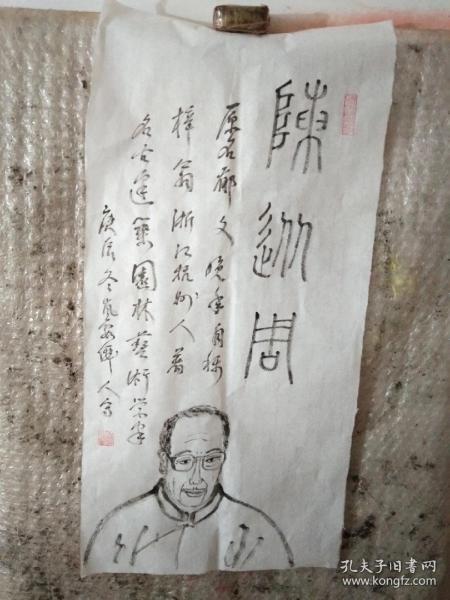 陳從周
原名郁文晚年自称
梓翁浙江杭州人著
名古建築園林藝術学家
庚辰冬
人写
孔夫子旧书网
www.kongfz.com